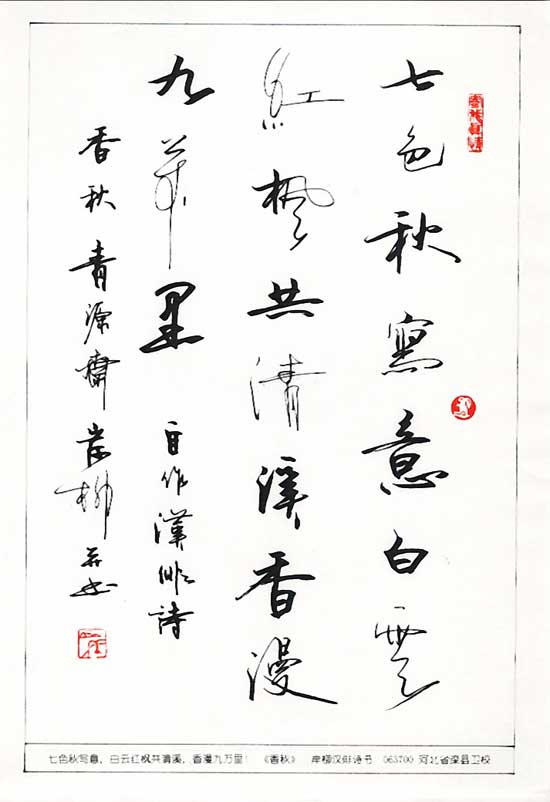 七色秋寫意白雲
紅楓共清溪香漫
九萬里 自作漢俳詩
香秋 青源齋 岸柳 并书
七色秋写意，白云红枫共清溪，香漫九万里！ 《香秋》 岸柳汉俳诗书 063700 河北省滦县卫校